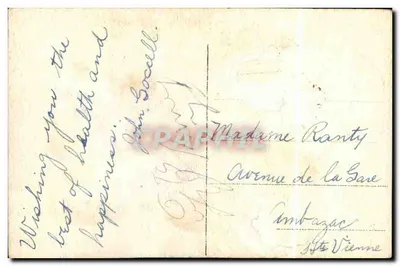 Wishing you the
best of health and
happiness.
John
Madame Ranty
Avenue de la Gare
Ambazac
Hte Vienne